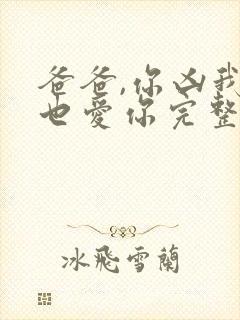 爸爸,你凶我
也爱你完整
冰飛雪蘭